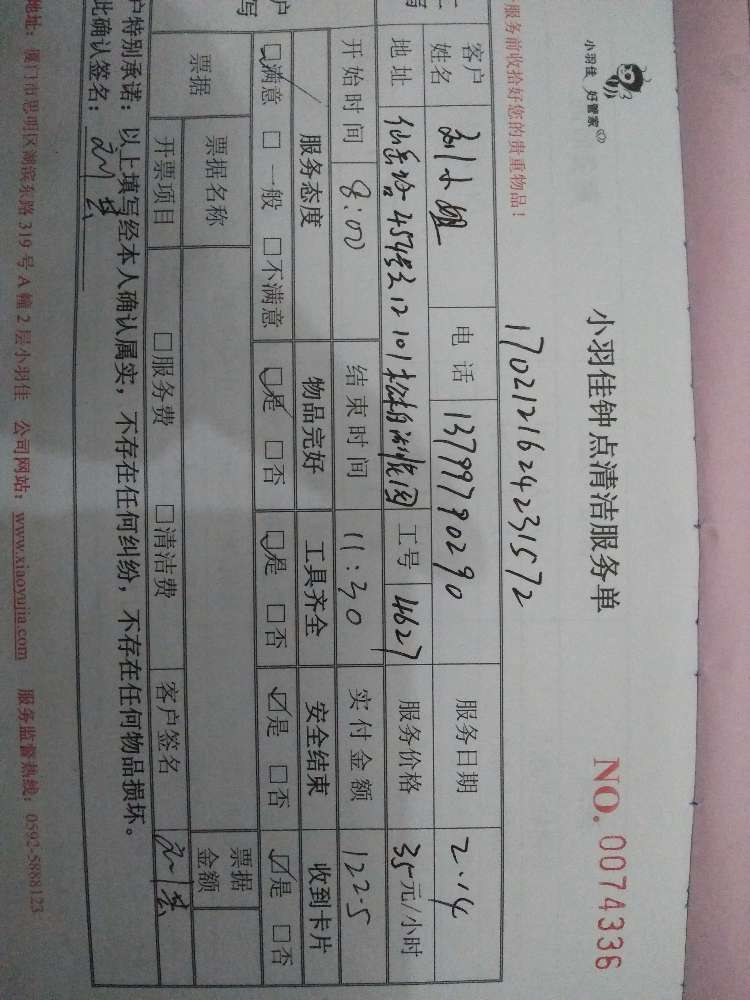 小羽佳 好管家
小羽佳钟点清洁服务单
NO. 0074336
服务前收拾好您的贵重物品!
1702121624231572
客户姓名 刘小姐 电话 13799790290 服务日期 2.14
地址 仙岳路454号之12 101 工号 4627 服务价格 35元/小时
开始时间 8:00 结束时间 11:30 实付金额 122.5
服务态度 物品完好 工具齐全 安全结束 收到卡片
☑满意 □一般 □不满意 ☑是 □否 ☑是 □否 ☑是 □否 ☑是 □否
票据 票据名称 票据金额
开票项目 □服务费 □清洁费 客户签名
户特别承诺:以上填写经本人确认属实,不存在任何纠纷,不存在任何物品损坏。
此确认签名:
地址:厦门市思明区湖滨东路319号A幢2层小羽佳 公司网站:www.xiaoyujia.com 服务监督热线:0592-5888123